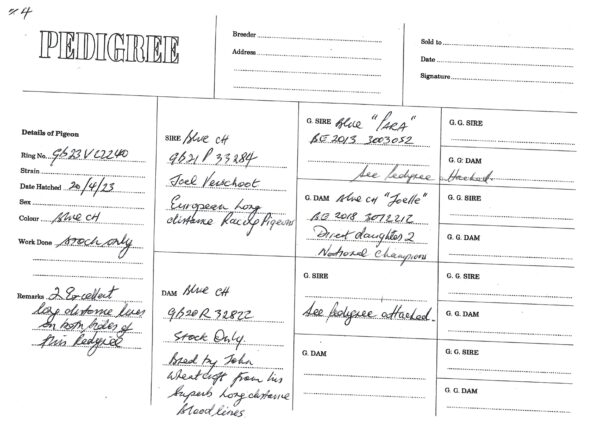 PEDIGREE
Breeder
Address
Sold to
Date
Signature
Details of Pigeon
Ring No. gb23 V C2240
Strain
Date Hatched 20/4/23
Sex
Colour Blue CH
Work Done Stock only
Remarks 2 Excellent
long distance lines
on both sides of
this Pedigree
SIRE Blue CH
gb21 P 33284
Joel Verschoot
European Long
distance Racing Pigeons
DAM Blue CH
gb20R 32822
Stock Only.
Bred by John
Wheatcroft from his
Superb Long distance
Bloodlines
G. SIRE Blue "PARA"
BE 2013 3003052
See Pedigree Attached.
G. DAM Blue CH "Joelle"
BE 2018 3072212
Direct daughter 2
National Champions
G. SIRE
See Pedigree attached.
G. DAM
G. G. SIRE
G. G. DAM
G. G. SIRE
G. G. DAM
G. G. SIRE
G. G. DAM
G. G. SIRE
G. G. DAM